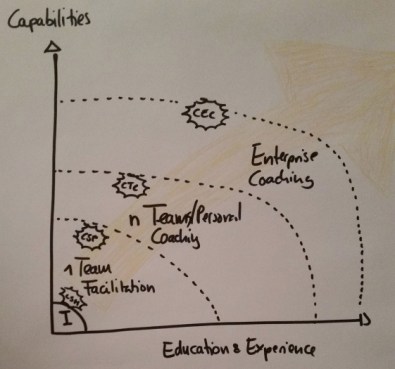 Capabilities
CEC
Enterprise
Coaching
CTC
n Teams/Personal
Coaching
CSP
1 Team
Facilitation
CSM
I
Education & Experience